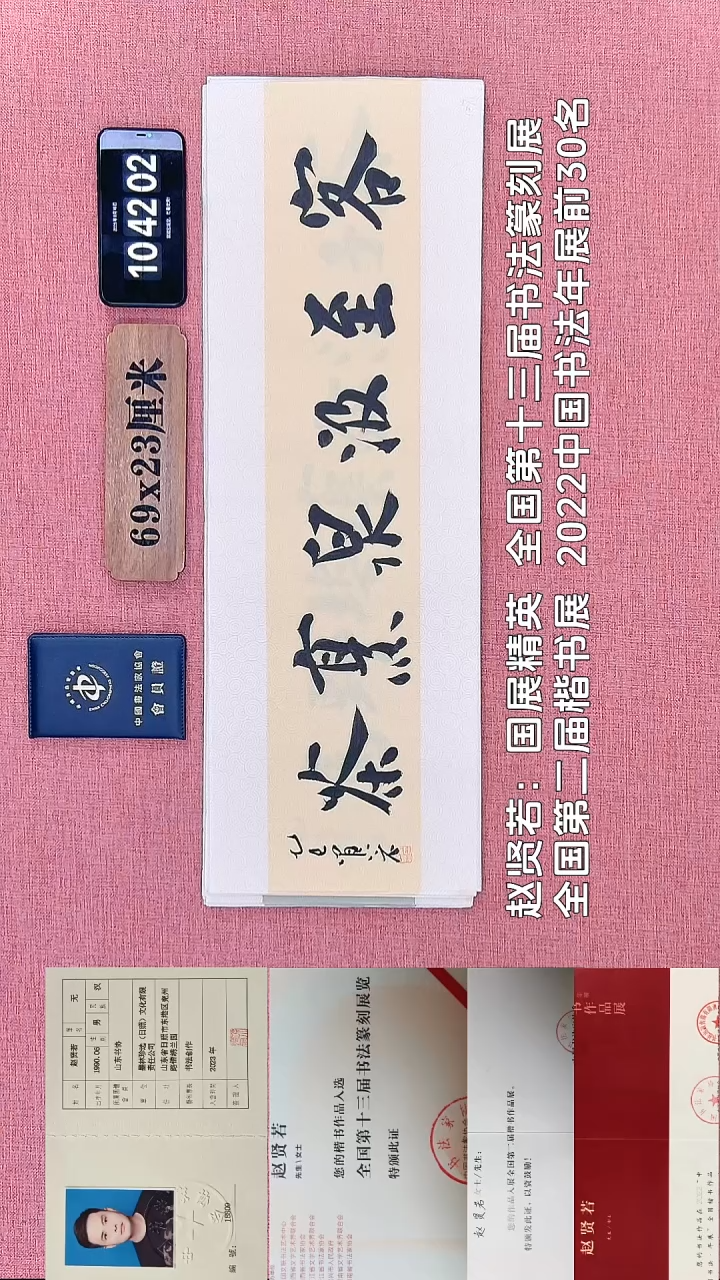 10 42 02
69x23厘米
中國書法家協會
會員證
客至汲泉烹茶
乙巳贤若
赵贤若：国展精英 全国第十三届书法篆刻展
全国第二届楷书展 2022中国书法年展前30名
赵贤若
无
1990.06
男
汉
山东书协
书法创作
2023 年
編號：
赵贤若
先生\女士
您的楷书作品入选
全国第十三届书法篆刻展览
特颁此证
赵贤若女士/先生：
您的书法作品入展全国第二届楷书作品展。
特颁发此证，以资鼓励！
作品展
赵贤若